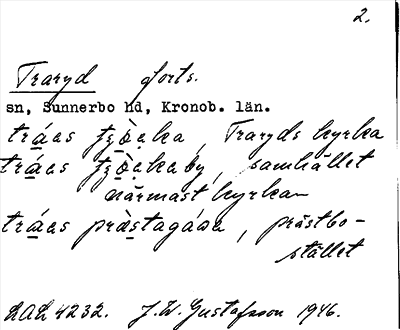 2.
Traryd forts.
sn, Sunnerbo hd, Kronob. län.
tráas , Traryds kyrka
tráas , samhället
närmast kyrkan
tráas , prästbo-
stället
LAL 4232. J.W. Gustafsson 1946.